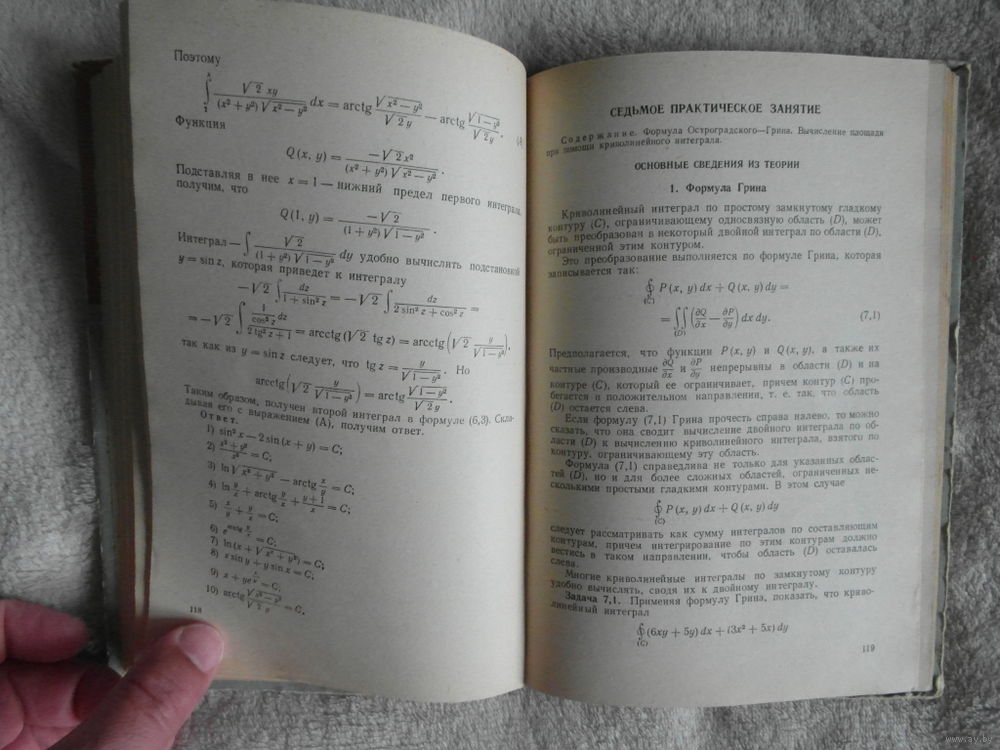 Поэтому
∫₁ˣ √2 xy / ((x² + y²) √(x² − y²)) dx = arctg √(x² − y²) / (√2 y) − arctg √(1 − y²) / (√2 y).
Функция
Q (x, y) = −√2 x² / ((x² + y²) √(x² − y²)) .
Подставляя в нее x = 1 — нижний предел первого интеграла,
получим, что
Q (1, y) = −√2 / ((1 + y²) √(1 − y²)) .
Интеграл — ∫ √2 / ((1 + y²) √(1 − y²)) dy удобно вычислить подстановкой
y = sin z, которая приведет к интегралу
−√2 ∫ dz / (1 + sin² z) = −√2 ∫ dz / (2 sin² z + cos² z) =
= −√2 ∫ (1 / cos² z) dz / (2 tg² z + 1) = arcctg (√2 tg z) = arcctg (√2 y / √(1 − y²)),
так как из y = sin z следует, что tg z = y / √(1 − y²) . Но
arcctg (√2 y / √(1 − y²)) = arctg √(1 − y²) / (√2 y) .
Таким образом, получен второй интеграл в формуле (6,3). Скла-
дывая его с выражением (А), получим ответ.
Ответ.
1) sin² x — 2 sin (x + y) = C;
2) = C;
3) ln √(x² + y²) − arctg x/y = C;
4) ln y/x + arctg y/x + (y + 1)/x = C;
5) x/y + y/x = C;
6) = C;
7) ln (x + √(x² + y²)) = C;
8) x sin y + y sin x = C;
9) x + ye^(x/y) = C;
10) arctg √(x² − y²) / (√2 y) = C.
118
СЕДЬМОЕ ПРАКТИЧЕСКОЕ ЗАНЯТИЕ
Содержание. Формула Остроградского—Грина. Вычисление площади
при помощи криволинейного интеграла.
ОСНОВНЫЕ СВЕДЕНИЯ ИЗ ТЕОРИИ
1. Формула Грина
Криволинейный интеграл по простому замкнутому гладкому
контуру (C), ограничивающему односвязную область (D), может
быть преобразован в некоторый двойной интеграл по области (D),
ограниченной этим контуром.
Это преобразование выполняется по формуле Грина, которая
записывается так:
∮(C) P (x, y) dx + Q (x, y) dy =
= ∬(D) (∂Q/∂x − ∂P/∂y) dx dy. (7,1)
Предполагается, что функции P (x, y) и Q (x, y), а также их
частные производные ∂Q/∂x и ∂P/∂y непрерывны в области (D) и на
контуре (C), который ее ограничивает, причем контур (C) про-
бегается в положительном направлении, т. е. так, что область
(D) остается слева.
Если формулу (7,1) Грина прочесть справа налево, то можно
сказать, что она сводит вычисление двойного интеграла по об-
ласти (D) к вычислению криволинейного интеграла, взятого по
контуру, ограничивающему эту область.
Формула (7,1) справедлива не только для указанных облас-
тей (D), но и для более сложных областей, ограниченных не-
сколькими простыми гладкими контурами. В этом случае
∮(C) P (x, y) dx + Q (x, y) dy
следует рассматривать как сумму интегралов по составляющим
контурам, причем интегрирование по этим контурам должно
вестись в таком направлении, чтобы область (D) оставалась
слева.
Многие криволинейные интегралы по замкнутому контуру
удобно вычислять, сводя их к двойному интегралу.
Задача 7,1. Применяя формулу Грина, показать, что криво-
линейный интеграл
∮(C) (6xy + 5y) dx + (3x² + 5x) dy
119
www.ay.by